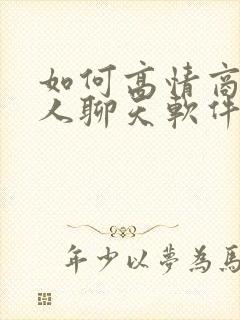 如何高情商
人聊天軟件
年少以夢為馬